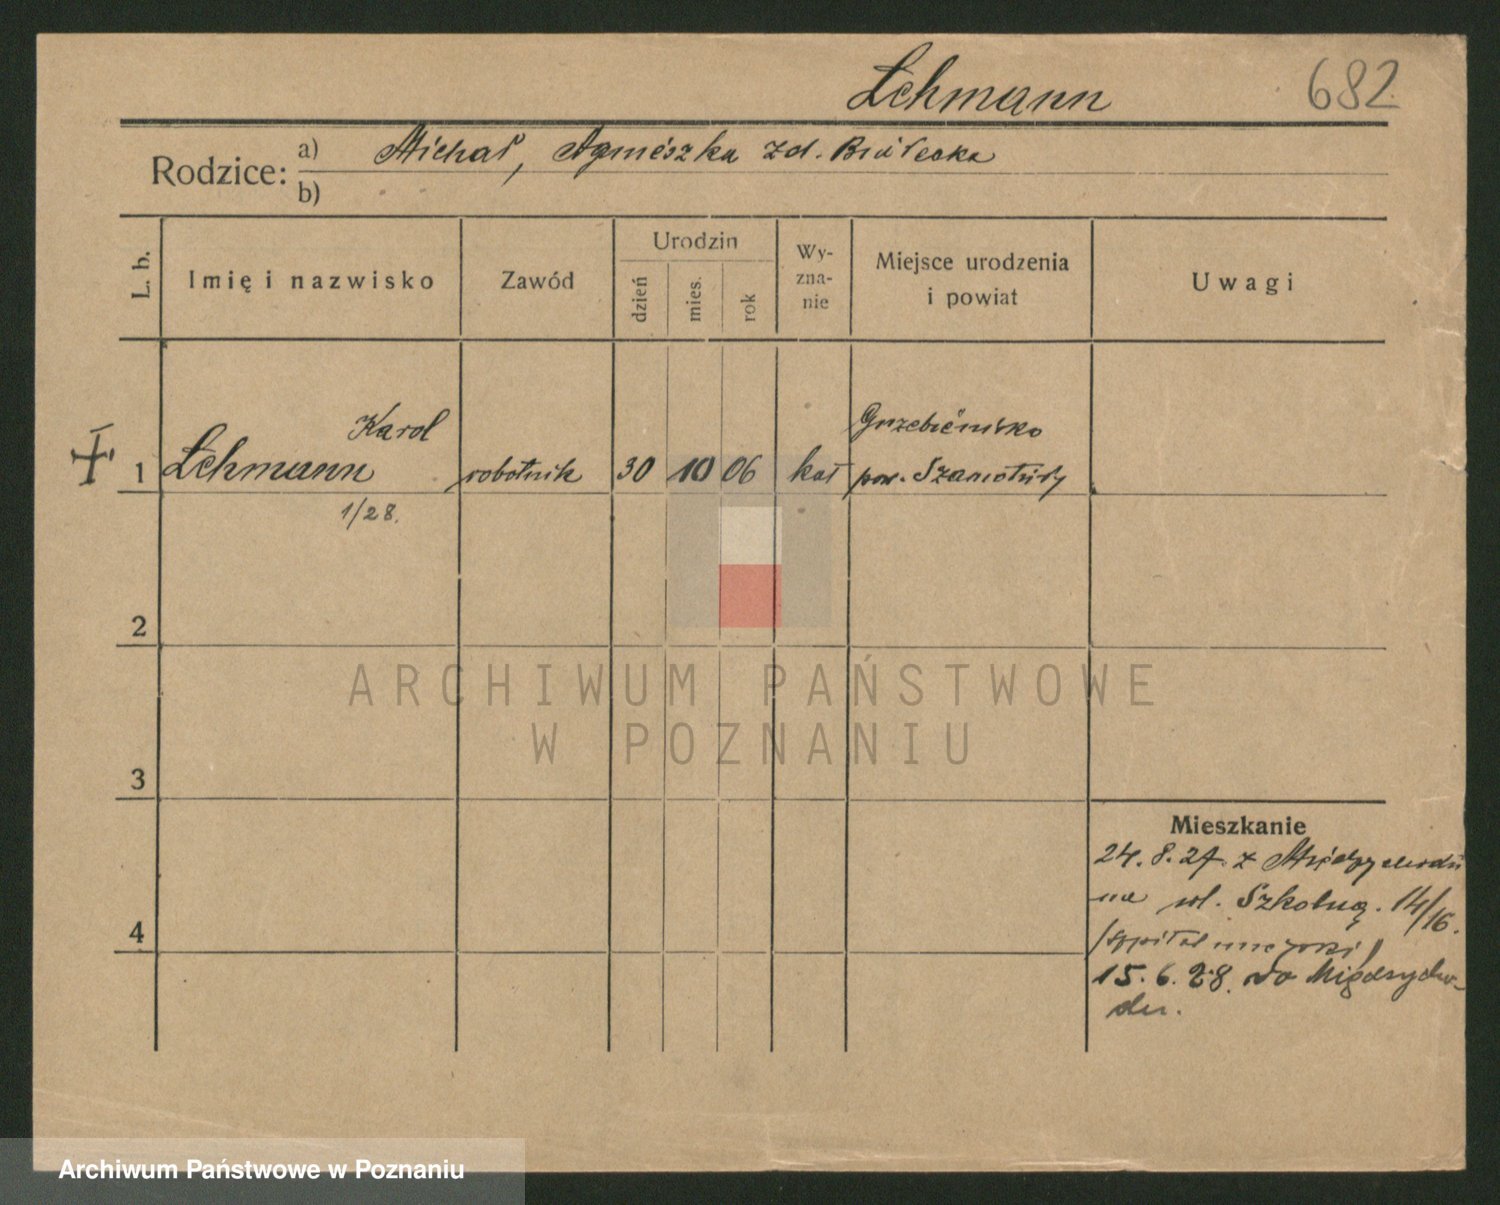 Lehmann
682
Rodzice:
a) Michał, Agnieszka zd. Białecka
b)
L. b.
Imię i nazwisko
Zawód
Urodzin
dzień
mies.
rok
Wy-
zna-
nie
Miejsce urodzenia
i powiat
Uwagi
Karol
1 Lehmann robotnik 30 10 06 kat
Grzebienisko
pow. Szamotuły
1/28.
2
3
4
Mieszkanie
24. 8. 27. z Międzychodu
na ul. Szkolną. 14/16.
/szpital miejski/
15. 6. 28. do Międzycho-
du.
ARCHIWUM PAŃSTWOWE
W POZNANIU
Archiwum Państwowe w Poznaniu